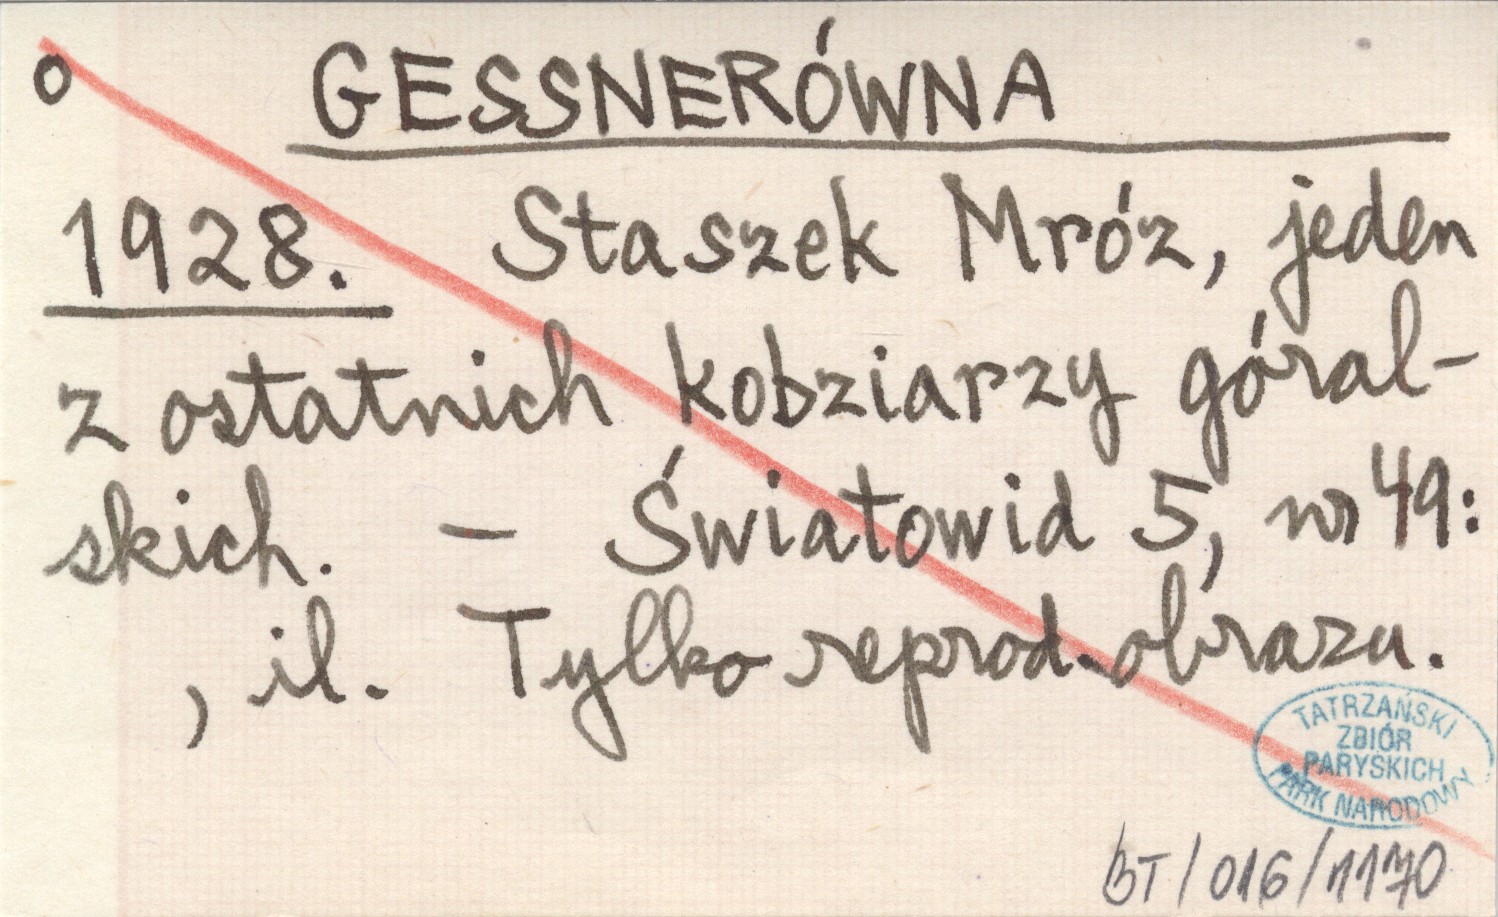 o GESSNERÓWNA
1928. Staszek Mróz, jeden
z ostatnich kobziarzy góral-
skich. – Światowid 5, nr 49:
, il. Tylko reprod. obrazu.
TATRZAŃSKI
ZBIÓR
PARYSKICH
PARK NARODOWY
BT/016/1170